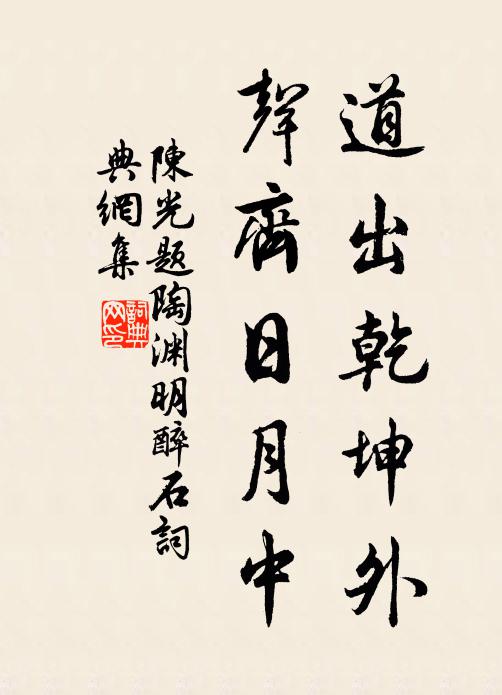 道出乾坤外
聲齊日月中
陳光題陶渊明醉石詞
典網集
詞典网印